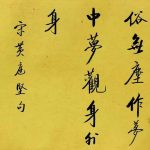 俗無塵作夢
中夢觀身外
身
宋黃庭堅句